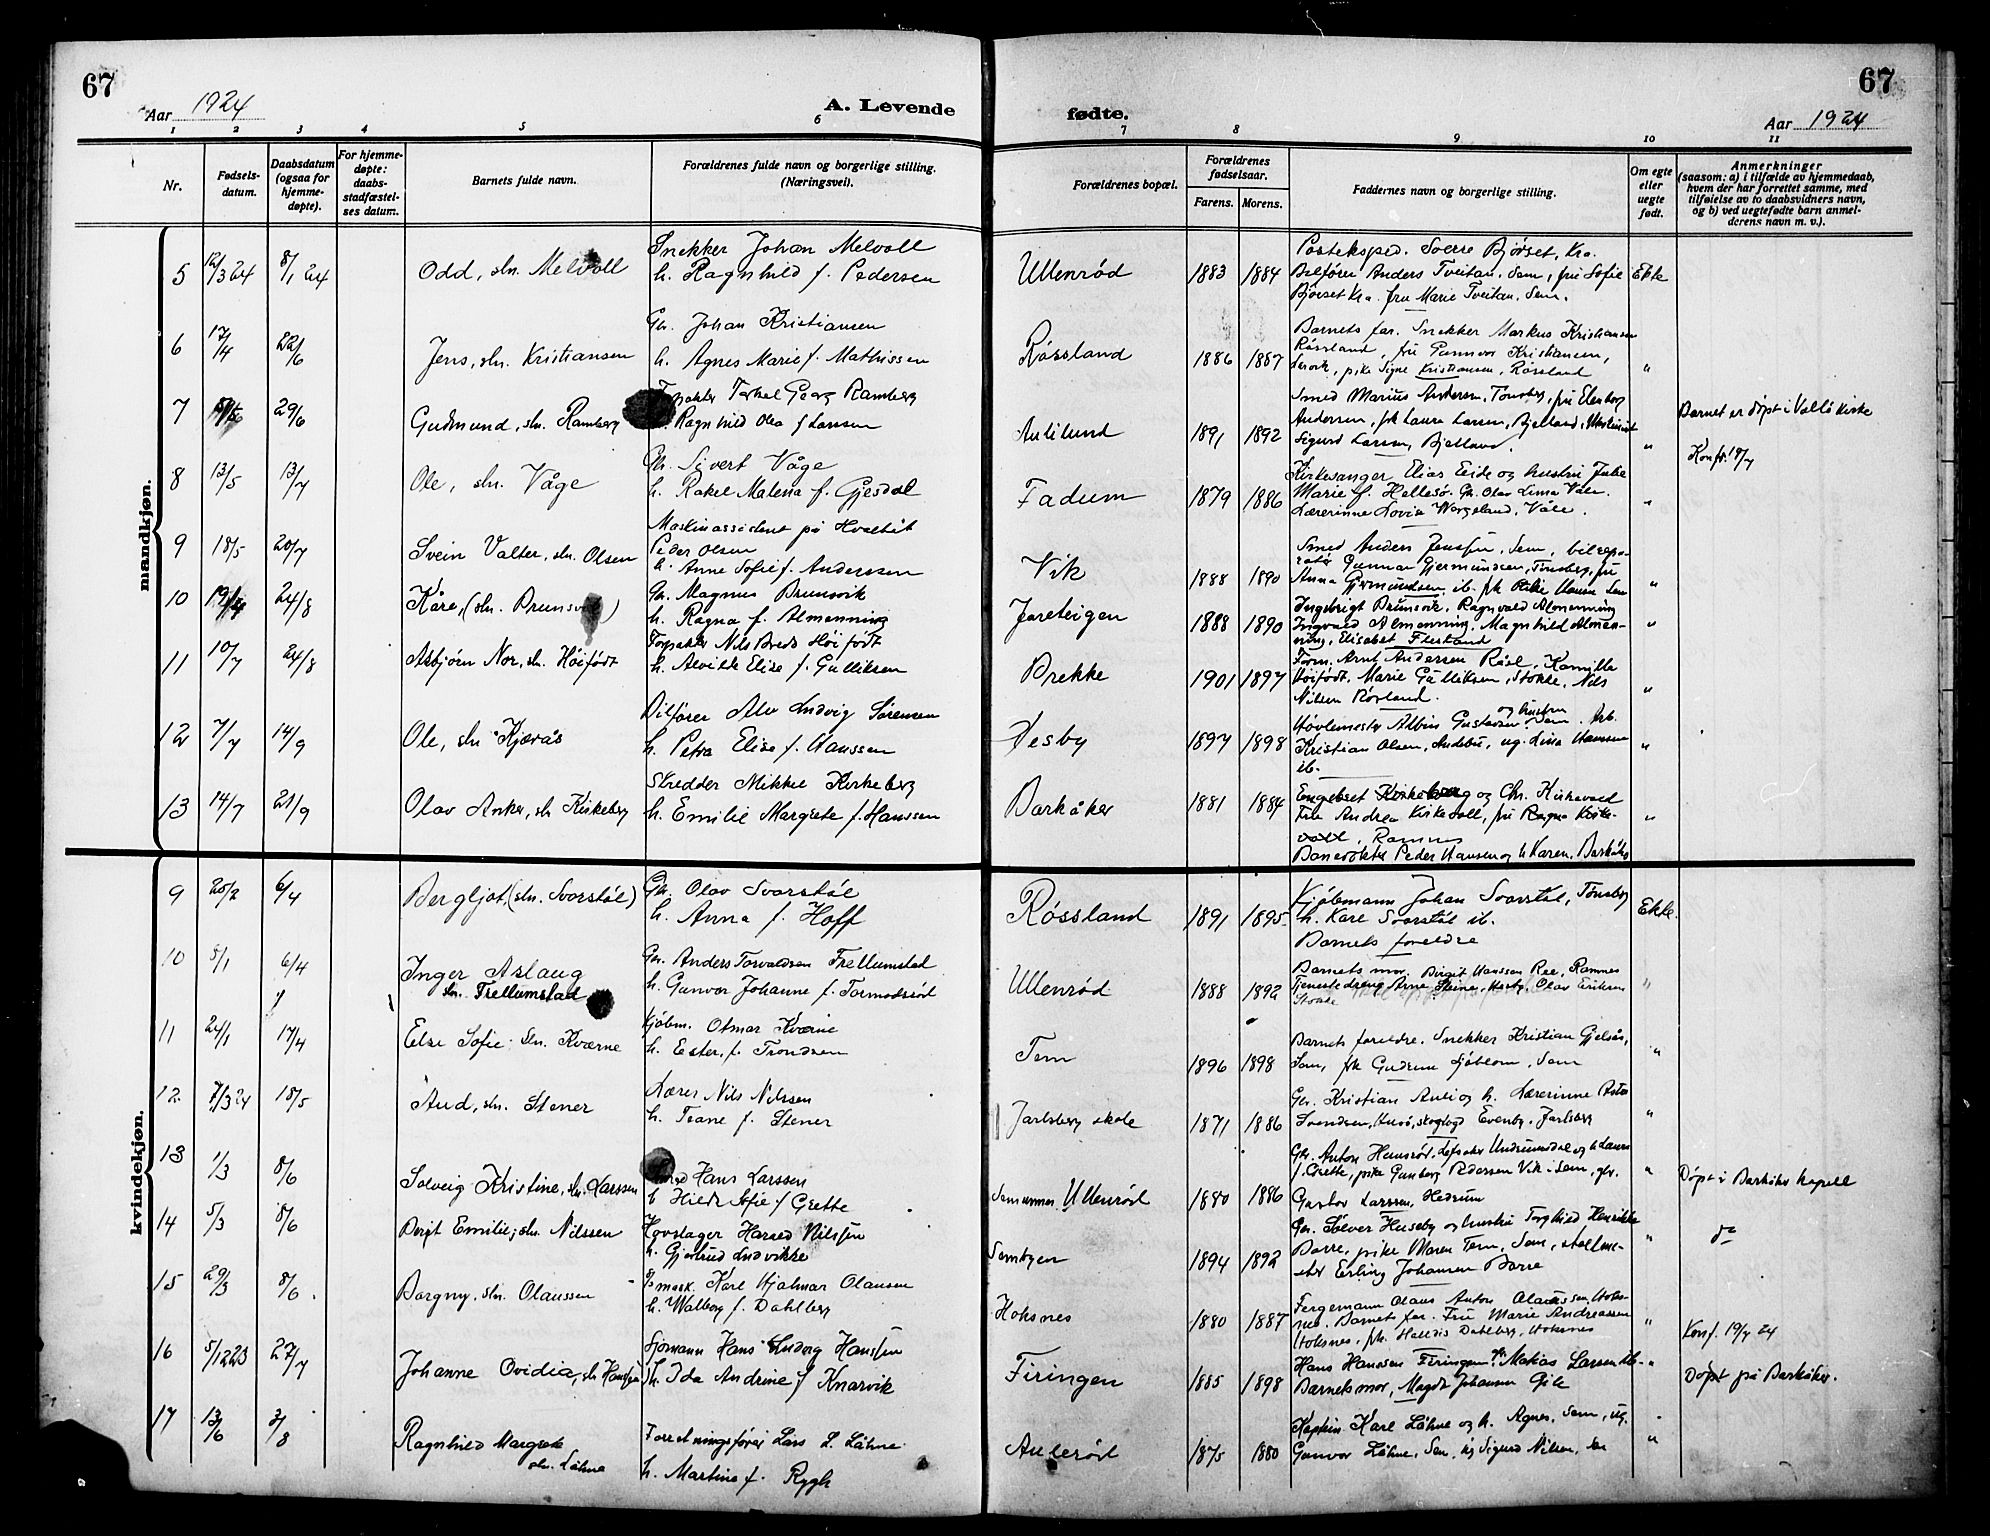 67
Aar 1924
A. Levende
fødte.
Aar 1924
67
1 2 3 4 5 6 7 8 9 10 11
Nr.
Fødsels-
datum.
Daabsdatum
(ogsaa for
hjemme-
døpte).
For hjemme-
døpte:
daabs-
stadfæstel-
ses datum.
Barnets fulde navn.
Forældrenes fulde navn og borgerlige stilling.
(Næringsvei).
Forældrenes bopæl.
Forældrenes
fødselsaar.
Farens. Morens.
Faddernes navn og borgerlige stilling.
Om egte
eller
uegte
født.
Anmerkninger
(saasom: a) i tilfælde av hjemmedaab,
hvem der har forrettet samme, med
tilføielse av to daabsvidners navn,
og b) ved uegtefødte barn anmel-
derens navn m. v.).
mandkjøn.
5 12/3 24 8/1 24 Odd, sln. Melvoll
Snekker Johan Melvoll
h. Ragnhild f. Pedersen
Ullenrød 1883 1884
Posteksped. Sverre Bjørset, Kra.
Bilfører Anders Tveitan, Sem, fru Sofie
Bjørset Kra. fru Marie Tveitan, Sem.
Ekte
6 17/4 22/6 Jens, sln. Kristiansen
Gr. Johan Kristiansen
h. Agnes Marie f. Mathissen
Røssland 1886 1887
Barnets far. Snekker Markus Kristiansen
Røssland, fru Gunvor Kristiansen,
pike Signe Kristiansen, Røssland
"
7 29/6 Gudmund, sln. Ramberg
Torkel Georg Ramberg
Ragnhild Olea f Larsen
Aulilund 1891 1892
Smed Marius Andersen, Tønsberg, fru Elenborg
Andersen, frk Laura Larsen, Bjelland,
Sigurd Larsen, Bjelland.
"
Barnet er døpt i Vallø kirke
Konf.
8 13/5 13/7 Ole, sln. Våge
Gr. Sivert Våge
h. Rakel Malena f. Gjesdal
Fadum 1879 1886
Kirkesanger Elias Eide og hustru Julie
Marie f. Hellesø. Gr. Olav Lima Våle.
Lærerinne Lovise Worgeland, Våle.
"
9 18/5 20/7 Svein Valter, sln. Olsen
Maskinassistent på Hvalbåt
Peder Olsen
h. Anne Sofie f. Anderssen
Vik 1888 1890
Smed Anders Jenssen, Sem, bilrepa-
ratør Gunnar Gjermundsen, Tønsberg, fru
Anna Gjermundsen, ib. frk Hansen Sem
"
10 24/8 Kåre, (sln. Brunsvik)
Gr. Magnus Brunsvik
h. Ragna f. Almenning
Jareteigen 1888 1890
Ingebrigt Brunsvik, Ragnvald Almenning
Ingvald Almenning, Magnhild Almen-
ning, Elisabet Flestand
"
11 10/7 24/8 Asbjørn Nor, sln. Høifødt
Forpakter Nils Høifødt
h. Alvilde Elise f. Gulliksen
Brekke 1901 1897
Form. Arnt Andersen Råel, Kamilla
Høifødt, Marie Gulliksen, Stokke, Nils
Nilsen Rørland.
"
12 7/7 14/9 Ole, sln Kjærås
Bilfører Alv Ludvig Sørensen
h. Petra Elise f. Hanssen
Vesby 1897 1898
og hustru
Høvlemester Albin Gustavsen Sem. Arb.
Kristian Olsen, Andebu, ug. Lina Hanssen
ib.
"
13 14/7 21/9 Olav Anker, sln Kirkeberg
Skredder Mikkel Kirkeberg
h. Emilie Margrete f. Hanssen
Barkåker 1881 1884
Engebret Kirkeberg og Chr. Kirkevold
Frk Andrea Kirkevoll, fru Ragna Kirke-
voll, Ramnes
Banevokter Peder Hansen og h Karen, Barkåker
"
kvindekjøn.
9 20/2 6/4 Bergljot, (sln. Svorstøl)
Gr. Olav Svorstøl
h. Anna f. Hoff
Røssland 1891 1895
Kjøbmann Johan Svarstøl, Tønsberg
h. Kare Svarstøl ib.
Barnets foreldre
Ekte.
10 5/1 6/4 Inger Aslaug
sln. Frellumstad
Gr. Anders Torvaldsen Frellumstad
h. Gunvor Johanne f. Tormodsrød
Ullenrød 1888 1892
Barnets mor. Birgit Hanssen Ree, Ramnes
Tjenestedreng Arne Steinar, Olav Eriksen
Stokke
"
11 24/1 17/4 Else Sofie sln. Kværne
Kjøbm. Otmar Kværne
h. Ester, f. Trondsen
Tem 1896 1898
Barnets foreldre. Snekker Kristian Gjelsås,
Sem, frk Gudrun Sjøblom, Sem
"
12. 7/3 24 18/5 Aud, sln. Stener
Lærer Nils Nilssen
h. Teane f. Stener
Jarlsberg skole 1871 1886
Gr. Kristian Auli og h. Lærerinne Asta
Svendsen, Husø, skogfogd Evenby, Jarlsberg
"
13 1/3 8/6 Solveig Kristine, sln. Larssen
Hans Larssen
h Hilda Sofie f Grette
Ullenrød 1880 1886
Gr. Anton Hemsrød, Undrumsdal og h Laura
f. Grette, pike Gunborg Pedersen Vik i Sem, gr.
Gustav Larssen, Hedrum
"
Døpt i Barkåker kapell
14 5/3 8/6 Berit Emilie, sln. Nilssen
Hovslager Harald Nilssen
h. Gjertrud Ludvikke
Sembyen 1894 1892
Gr. Sølver Huseby og hustru Torghild Henrikke
Borre, pike Maren Tem, Sem,
Erling Johansen Borre
"
do
15 29/3 8/6. Borgny, sln. Olaussen
mask. Karl Hjalmar Olausen
h. Walborg f. Dahlberg
Hoksnes 1880 1887
Fergemann Olaus Anton Olaussen, Hoks-
nes. Barnets far. Fru Marie Andreassen
Hoksnes, frk. Halldis Dahlberg, Hoksnes
"
Konf. 19/7 24
16 5/12 23 27/7 Johanne Ovidia, sln Hanssen
Sjømann Hans Ludvig Hanssen
h. Ida Andrine f Knarvik
Firingen 1885 1898
Hans Hanssen Firingen, Matias Larsen ib.
Barnets mor, Magda Johansen Gile
"
Døpt på Barkåker.
17 13/6 3/8 Ragnhild Margrete
sln. Løhne
Forretningsfører Lars L. Løhne
h. Martine f. Rygh
Aulerød 1875 1880
Kaptein Karl Løhne og h. Agnes, Sem, ug.
Gunvor Løhne, Sem, ug Sigurd Nilsen, Sem
"